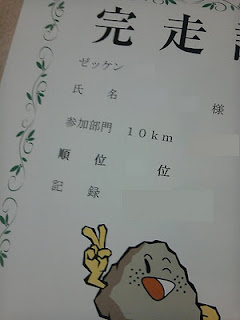 完走
ゼッケン
氏 名 様
参加部門 10km
順 位 位
記 録